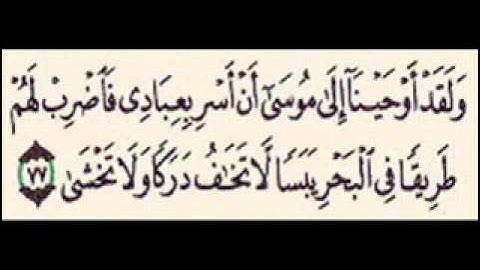 وَلَقَدْ أَوْحَيْنَآ إِلَىٰ مُوسَىٰٓ أَنْ أَسْرِ بِعِبَادِى فَٱضْرِبْ لَهُمْ
طَرِيقًا فِى ٱلْبَحْرِ يَبَسًا لَّا تَخَٰفُ دَرَكًا وَلَا تَخْشَىٰ ٧٧